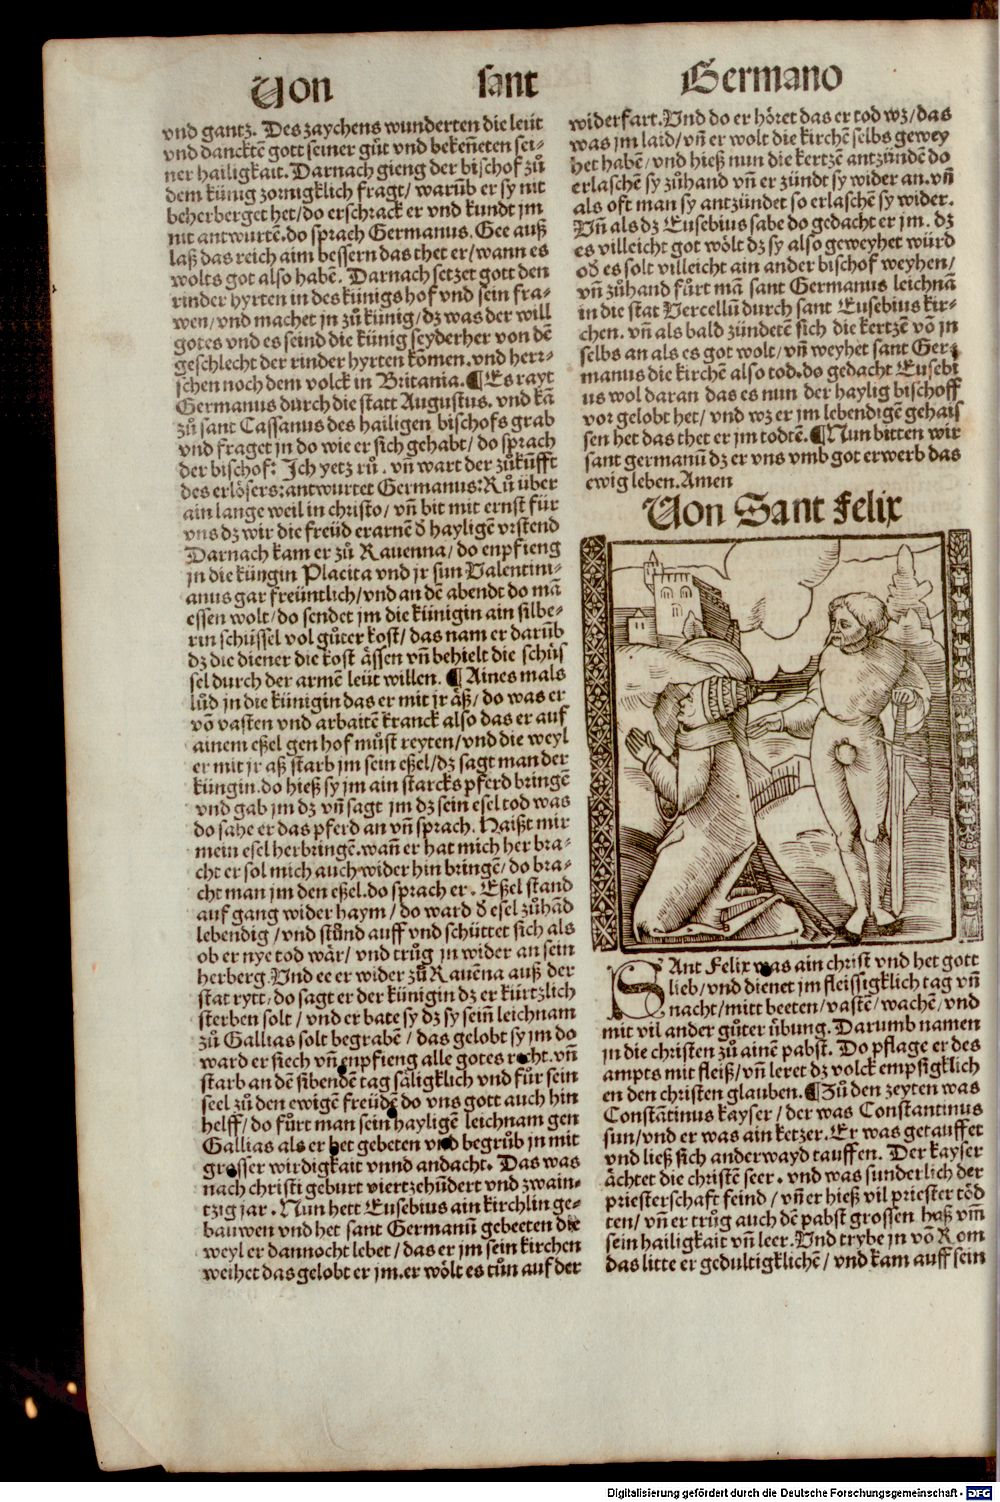 Von sant Germano
vnd gantz. Des zaychens wunderten die leüt
vnd dancktē gott seiner güt vnd bekeñeten sei-
ner hailigkait. Darnach gieng der bischof zů
dem künig zornigklich fragt/ warūb er sy nit
beherberget het/ do erschrack er vnd kundt jm
nit antwurtē. do sprach Germanus. Gee auß
laß das reich aim bessern das thet er/ wann es
wolts got also habē. Darnach setzet gott den
rinder hyrten in des künigs hof vnd sein fra-
wen/ vnd machet jn zů künig/ dz was der will
gotes vnd es seind die künig seyderher von dē
geschlecht der rinder hyrten kōmen. vnd herr-
schen noch dem volck in Britania. ¶ Es rayt
Germanus durch die statt Augustus. vnd kā
zů sant Cassanus des hailigen bischofs grab
vnd fraget jn do wie er sich gehabt/ do sprach
der bischof: Ich yetz rů. vñ wart der zůkūfft
des erlösers: antwurtet Germanus: Rů über
ain lange weil in christo/ vñ bit mit ernst für
vns dz wir die freüd erarnē d̄ hayligē vrstend
Darnach kam er zů Rauenna/ do enpfieng
jn die küngin Placita vnd jr sun Valentini-
anus gar freüntlich/ vnd an dē abendt do mā
essen wolt/ do sendet jm die künigin ain silbe-
rin schüssel vol gůter kost/ das nam er darūb
dz die diener die kost ässen vñ behielt die schüs
sel durch der armē leüt willen. ¶ Aines mals
lůd jn die künigin das er mit jr äß/ do was er
vō vasten vnd arbaitē kranck also das er auf
ainem eßel gen hof můst reyten/ vnd die weyl
er mit jr aß starb jm sein eßel/ dz sagt man der
küngin. do hieß sy jm ain starcks pferd bringē
vnd gab jm dz vñ sagt jm dz sein esel tod was
do sahe er das pferd an vñ sprach. Haißt mir
mein esel herbringē. wañ er hat mich her bra-
cht er sol mich auch wider hin bringē/ do bra-
cht man jm den eßel. do sprach er. Eßel stand
auf gang wider haym/ do ward d̄ esel zůhād
lebendig/ vnd stůnd auff vnd schüttet sich als
ob er nye tod wär/ vnd trůg jn wider an sein
herberg. Vnd ee er wider zů Rauēna auß der
stat rytt/ do sagt er der künigin dz er kürtzlich
sterben solt/ vnd er bate sy dz sy seiñ leichnam
zů Gallias solt begrabē/ das gelobt sy jm do
ward er siech vñ enpfieng alle gotes recht. vñ
starb an dē sibendē tag säligklich vnd für sein
seel zů den ewigē freüdē do vns gott auch hin
helff/ do fůrt man sein hayligē leichnam gen
Gallias als er het gebeten vnd begrůb jn mit
grosser wirdigkait vnnd andacht. Das was
nach christi geburt viertzehūdert vnd zwain-
tzig jar. Nun hett Eusebius ain kirchlin ge-
bauwen vnd het sant Germanū gebeeten die
weyl er dannocht lebet/ das er jm sein kirchen
weihet das gelobt er jm. er wölt es tůn auf der
widerfart. Vnd do er höret das er tod wz/ das
was jm laid/ vñ er wolt die kirchē selbs gewey
het habē/ vnd hieß nun die kertzē antzündē do
erlaschē sy zůhand vñ er zündt sy wider an. vñ
als oft man sy antzündet so erlaschē sy wider.
Vñ als dz Eusebius sahe do gedacht er jm. dz
es villeicht got wölt dz sy also geweyhet würd
od̄ es solt villeicht ain ander bischof weyhen/
vñ zůhand fůrt mā sant Germanus leichnā
in die stat Vercellū durch sant Eusebius kir-
chen. vñ als bald zündetē sich die kertzē vō jn
selbs an als es got wolt/ vñ weyhet sant Ger-
manus die kirchē also tod. do gedacht Eusebi
us wol daran das es nun der haylig bischoff
vor gelobt het/ vnd wz er im lebendigē gehais
sen het das thet er jm todtē. ¶ Nun bitten wir
sant germanū dz er vns vmb got erwerb das
ewig leben. Amen
Von Sant Felix
SAnt Felix was ain christ vnd het gott
lieb/ vnd dienet jm fleissigklich tag vñ
nacht/ mitt beeten/ vastē/ wachē/ vnd
mit vil ander gůter übung. Darumb namen
jn die christen zů ainē pabst. Do pflage er des
ampts mit fleiß/ vñ leret dz volck empsigklich
en den christen glauben. ¶ Zů den zeyten was
Constātinus kayser/ der was Constantinus
sun/ vnd er was ain ketzer. Er was getauffet
vnd ließ sich anderwayd tauffen. Der kayser
ächtet die christē seer. vnd was sunderlich der
priesterschaft feind/ vñ er hieß vil priester töd
ten/ vñ er trůg auch dē pabst grossen haß vm̄
sein hailigkait vñ leer. Vnd trybe jn vō Rom
das litte er gedultigklichē/ vnd kam auff sein
Digitalisierung gefördert durch die Deutsche Forschungsgemeinschaft - DFG